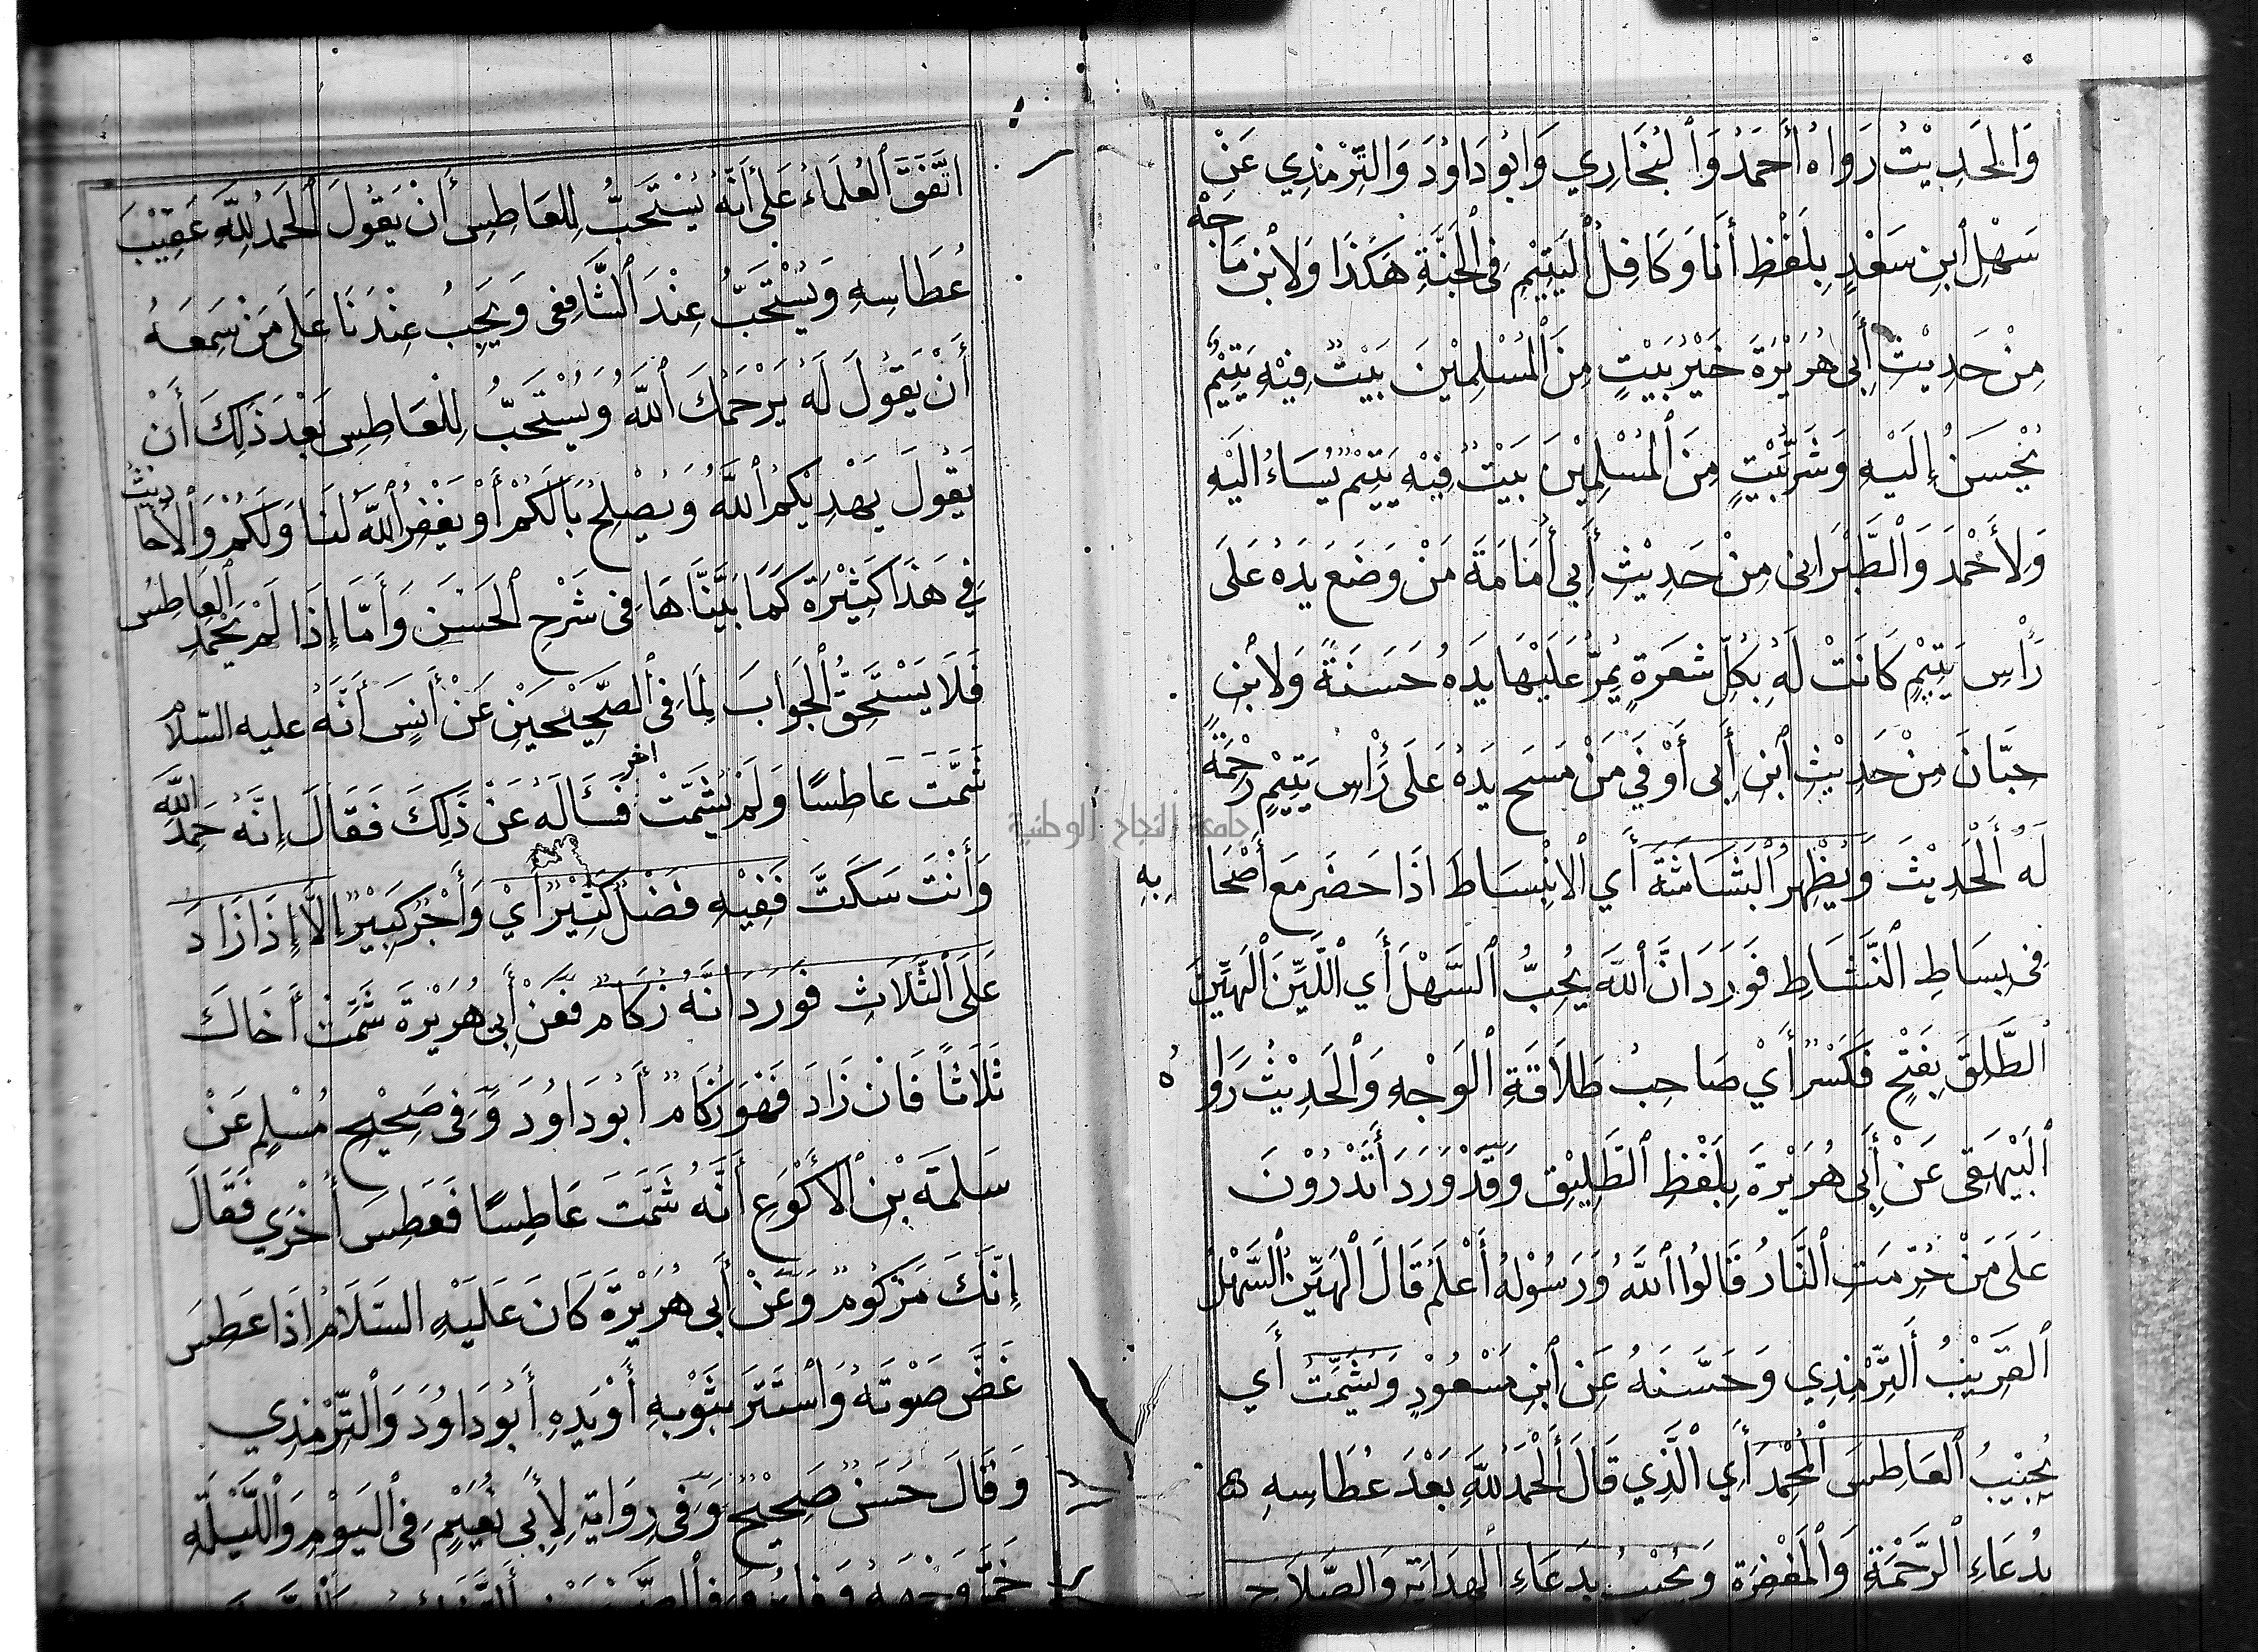 وَالْحَدِيْثُ رَوَاهُ أَحْمَدُ وَالْبُخَارِي وَابُودَاوُدَ وَالتِّرْمِذِي عَنْ
سَهْلِ ابْنِ سَعْدٍ بِلَفْظِ أَنَا وَكَافِلُ الْيَتِيْمِ فِي الْجَنَّةِ هَكَذَا وَلاِبْنِ مَاجَهْ
مِنْ حَدِيْثِ أَبِي هُرَيْرَةَ خَيْرُ بَيْتٍ مِنَ الْمُسْلِمِيْنَ بَيْتٌ فِيْهِ يَتِيْمٌ
يُحْسَنُ إِلَيْهِ وَشَرُّ بَيْتٍ مِنَ الْمُسْلِمِيْنَ بَيْتٌ فِيْهِ يَتِيْمٌ يُسَاءُ الَيْهِ
وَلأَحْمَدَ وَالطَّبَرَانِي مِنْ حَدِيْثِ أَبِي أُمَامَةَ مَنْ وَضَعَ يَدَهُ عَلَى
رَأْسِ يَتِيْمٍ كَانَتْ لَهُ بِكُلِّ شَعَرَةٍ يُمِرُّ عَلَيْهَا يَدَهُ حَسَنَةٌ وَلاِبْنِ
حِبَّانَ مِنْ حَدِيْثِ ابْنِ أَبِي أَوْفَى مَنْ مَسَحَ يَدَهُ عَلَى رَأْسِ يَتِيْمٍ رَحْمَةً
لَهُ الْحَدِيْثَ وَيُظْهِرُ الْبَشَاشَةَ أَي الاِنْبِسَاطَ اذَا حَضَرَ مَعَ أَصْحَابِهِ
فِي بِسَاطِ النَّشَاطِ فَوَرَدَ انَّ اللهَ يُحِبُّ السَّهْلَ أَي اللَّيِّنَ الْهَيِّنَ
الطَّلِقَ بِفَتْحٍ فَكَسْرٍ أَيْ صَاحِبُ طَلَاقَةِ الْوَجْهِ وَالْحَدِيْثُ رَوَاهُ
الْبَيْهَقِي عَنْ أَبِي هُرَيْرَةَ بِلَفْظِ الطَّلِيْقِ وَقَدْ وَرَدَ أَتَدْرُوْنَ
عَلَى مَنْ حُرِّمَتِ النَّارُ قَالُوا اللهُ وَرَسُوْلُهُ أَعْلَمُ قَالَ الْهَيِّنُ السَّهْلُ
الْقَرِيْبُ التِّرْمِذِي وَحَسَّنَهُ عَنِ ابْنِ مَسْعُوْدٍ وَيُشَمِّتُ أَي
يُجِيْبُ الْعَاطِسَ الْمُحْمِدَ أَي الَّذِي قَالَ الْحَمْدُ لِلّٰهِ بَعْدَ عُطَاسِهِ
بِدُعَاءِ الرَّحْمَةِ وَالْمَغْفِرَةِ وَيُجِيْبُ بِدُعَاءِ الْهِدَايَةِ وَالصَّلَاحِ
اتَّفَقَ الْعُلَمَاءُ عَلَى أَنَّهُ يُسْتَحَبُّ لِلْعَاطِسِ أَنْ يَقُولَ الْحَمْدُ لِلّٰهِ عَقِيْبَ
عُطَاسِهِ وَيُسْتَحَبُّ عِنْدَ الشَّافِعِي وَيَجِبُ عِنْدَنَا عَلَى مَنْ سَمِعَهُ
أَنْ يَقُولَ لَهُ يَرْحَمُكَ اللهُ وَيُسْتَحَبُّ لِلْعَاطِسِ بَعْدَ ذَلِكَ أَنْ
يَقُولَ يَهْدِيْكُمُ اللهُ وَيُصْلِحُ بَالَكُمْ أَوْ يَغْفِرُ اللهُ لَنَا وَلَكُمْ وَالْأَحَادِيْثُ
فِي هَذَا كَثِيْرَةٌ كَمَا بَيَّنَّاهَا فِي شَرْحِ الْحَسَنِ وَأَمَّا إِذَا لَمْ يَحْمَدِ الْعَاطِسُ
فَلَا يَسْتَحِقُّ الْجَوَابَ لِمَا فِي الصَّحِيْحَيْنِ عَنْ أَنَسٍ أَنَّهُ عليه السّلام
شَمَّتَ عَاطِسًا وَلَمْ يُشَمِّتْ اخر فَسَأَلَهُ عَنْ ذَلِكَ فَقَالَ إِنَّهُ حَمِدَ اللهَ
وَأَنْتَ سَكَتَّ فَفِيْهِ فَضْلٌ كَثِيْرٌ أَيْ وَأَجْرٌ كَبِيْرٌ إِلَّا إِذَا زَادَ
عَلَى الثَّلَاثِ فَوَرَدَ انَّهُ زُكَامٌ فَعَنْ أَبِي هُرَيْرَةَ شَمِّتْ أَخَاكَ
ثَلَاثًا فَانْ زَادَ فَهُوَ زُكَامٌ أَبُودَاوُدَ وَفِي صَحِيْحِ مُسْلِمٍ عَنْ
سَلَمَةَ بْنِ الْأَكْوَعِ أَنَّهُ شَمَّتَ عَاطِسًا فَعَطِسَ أُخْرَي فَقَالَ
إِنَّكَ مَزْكُومٌ وَعَنْ أَبِي هُرَيْرَةَ كَانَ عَلَيْهِ السَّلَامُ اذَا عَطِسَ
غَضَّ صَوْتَهُ وَاسْتَتَرَ بِثَوْبِهِ أَوْ يَدِهِ أَبُودَاوُدَ وَالتِّرْمِذِي
وَقَالَ حَسَنٌ صَحِيْحٌ وَفِي رِوَايَةٍ لِأَبِي نُعَيْمٍ فِي الْيَوْمِ وَاللَّيْلَةِ
خَمَّرَ وَجْهَهُ
جامعة النجاح الوطنية